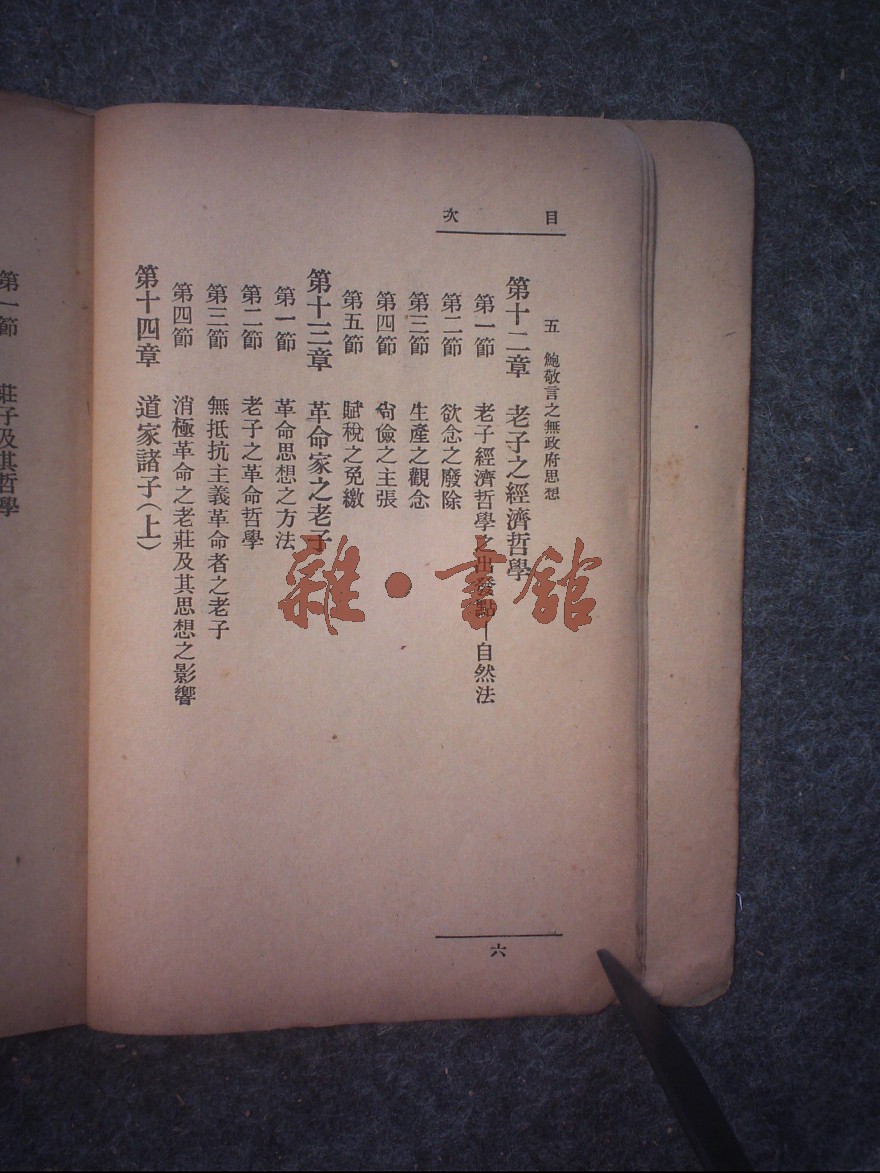 目次
五　鮑敬言之無政府思想
第十二章　老子之經濟哲學
第一節　老子經濟哲學之出發點—自然法
第二節　欲念之廢除
第三節　生產之觀念
第四節　尙儉之主張
第五節　賦稅之免繳
第十三章　革命家之老子
第一節　革命思想之方法
第二節　老子之革命哲學
第三節　無抵抗主義革命者之老子
第四節　消極革命之老莊及其思想之影響
第十四章　道家諸子（上）
六
第一節　莊子及其哲學
雜·書館